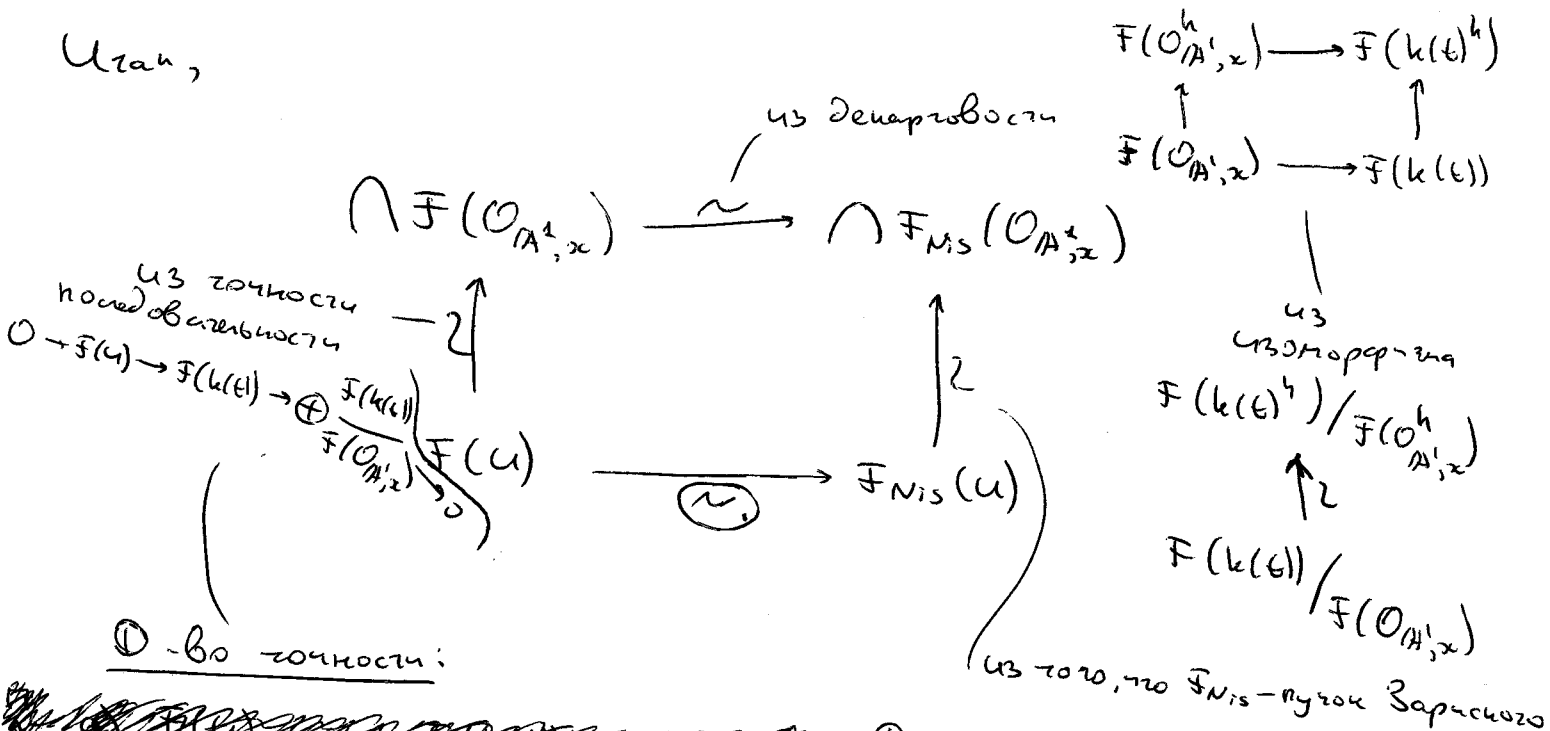 Итак,
F(O^h_{A¹,x}) → F(k(t)^h)
↑ ↑
F(O_{A¹,x}) → F(k(t))
из декартовости
∩ F(O_{A¹,x}) ~→ ∩ F_Nis(O_{A¹,x})
из точности
последовательности
0 → F(U) → F(k(t)) → ⊕ F(k(t))/F(O_{A¹,x}) → 0
F(U) ~→ F_Nis(U)
из
изоморфизма
F(k(t)^h)/F(O^h_{A¹,x})
F(k(t))/F(O_{A¹,x})
из того, что F_Nis – пучок Зариского
Д-во точности: